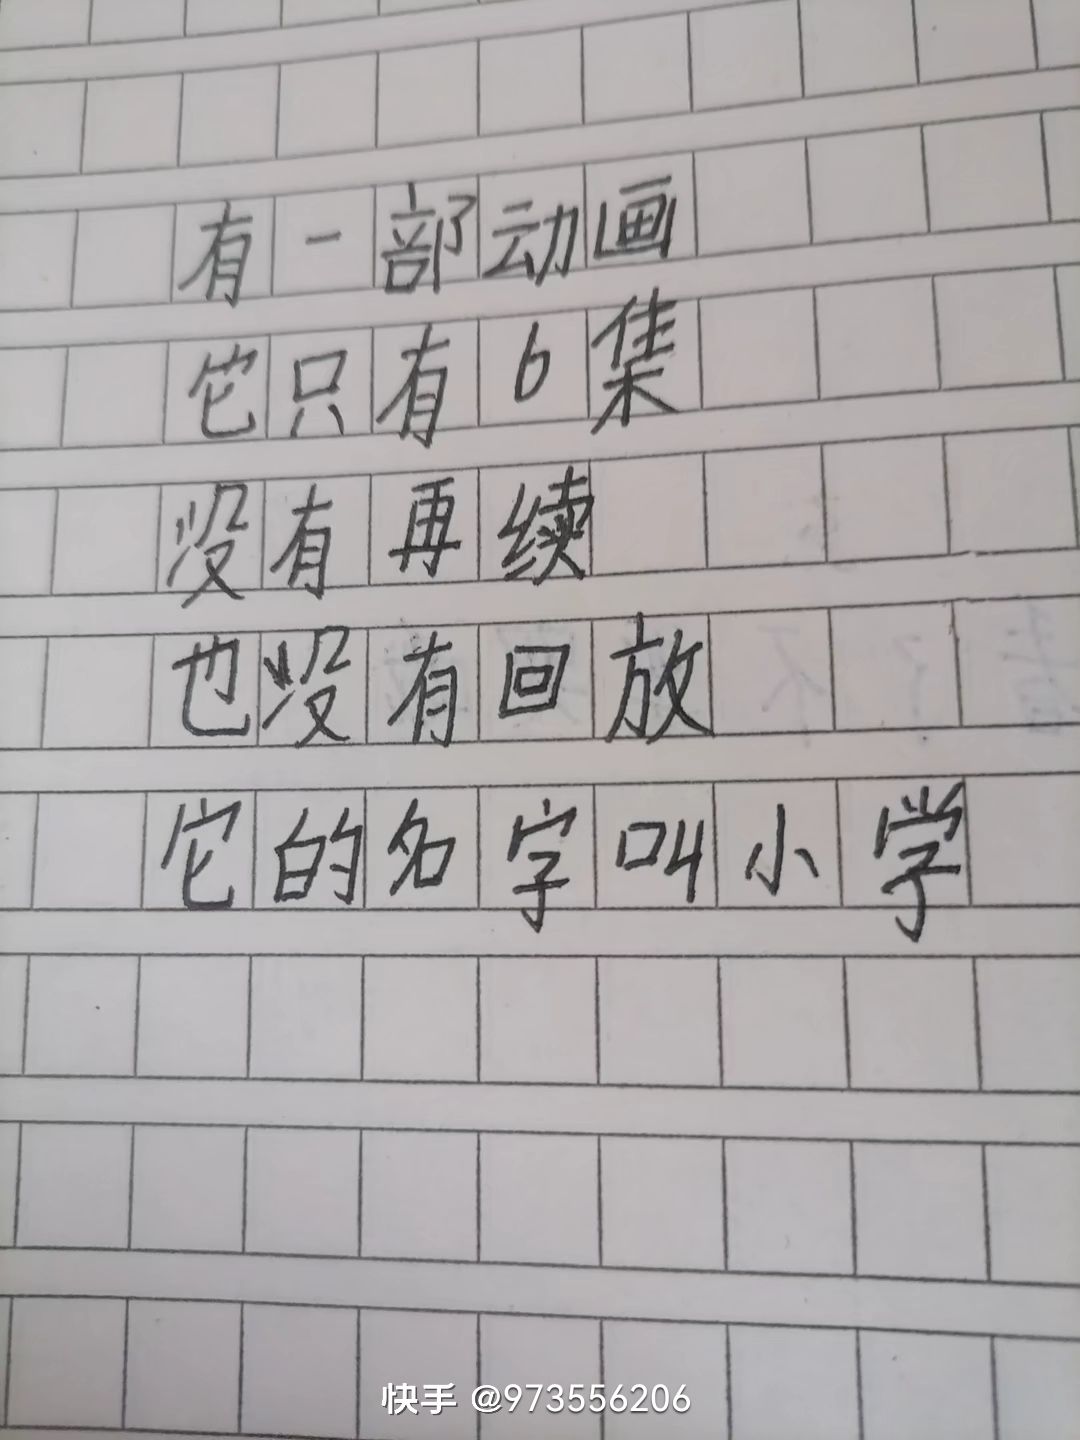 有一部动画
它只有6集
没有再续
也没有回放
它的名字叫小学
快手 @973556206